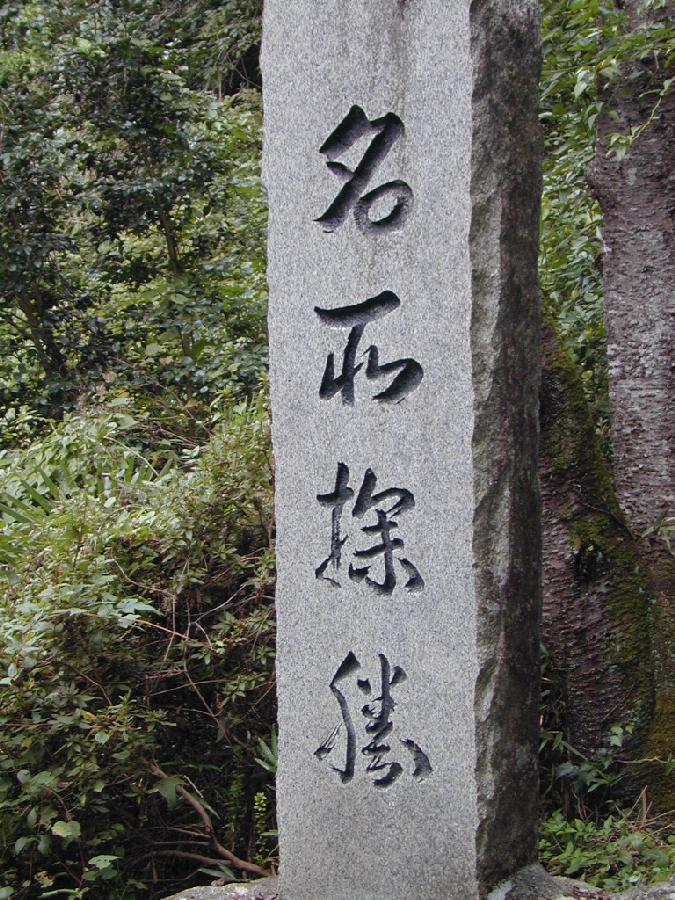 名所探勝